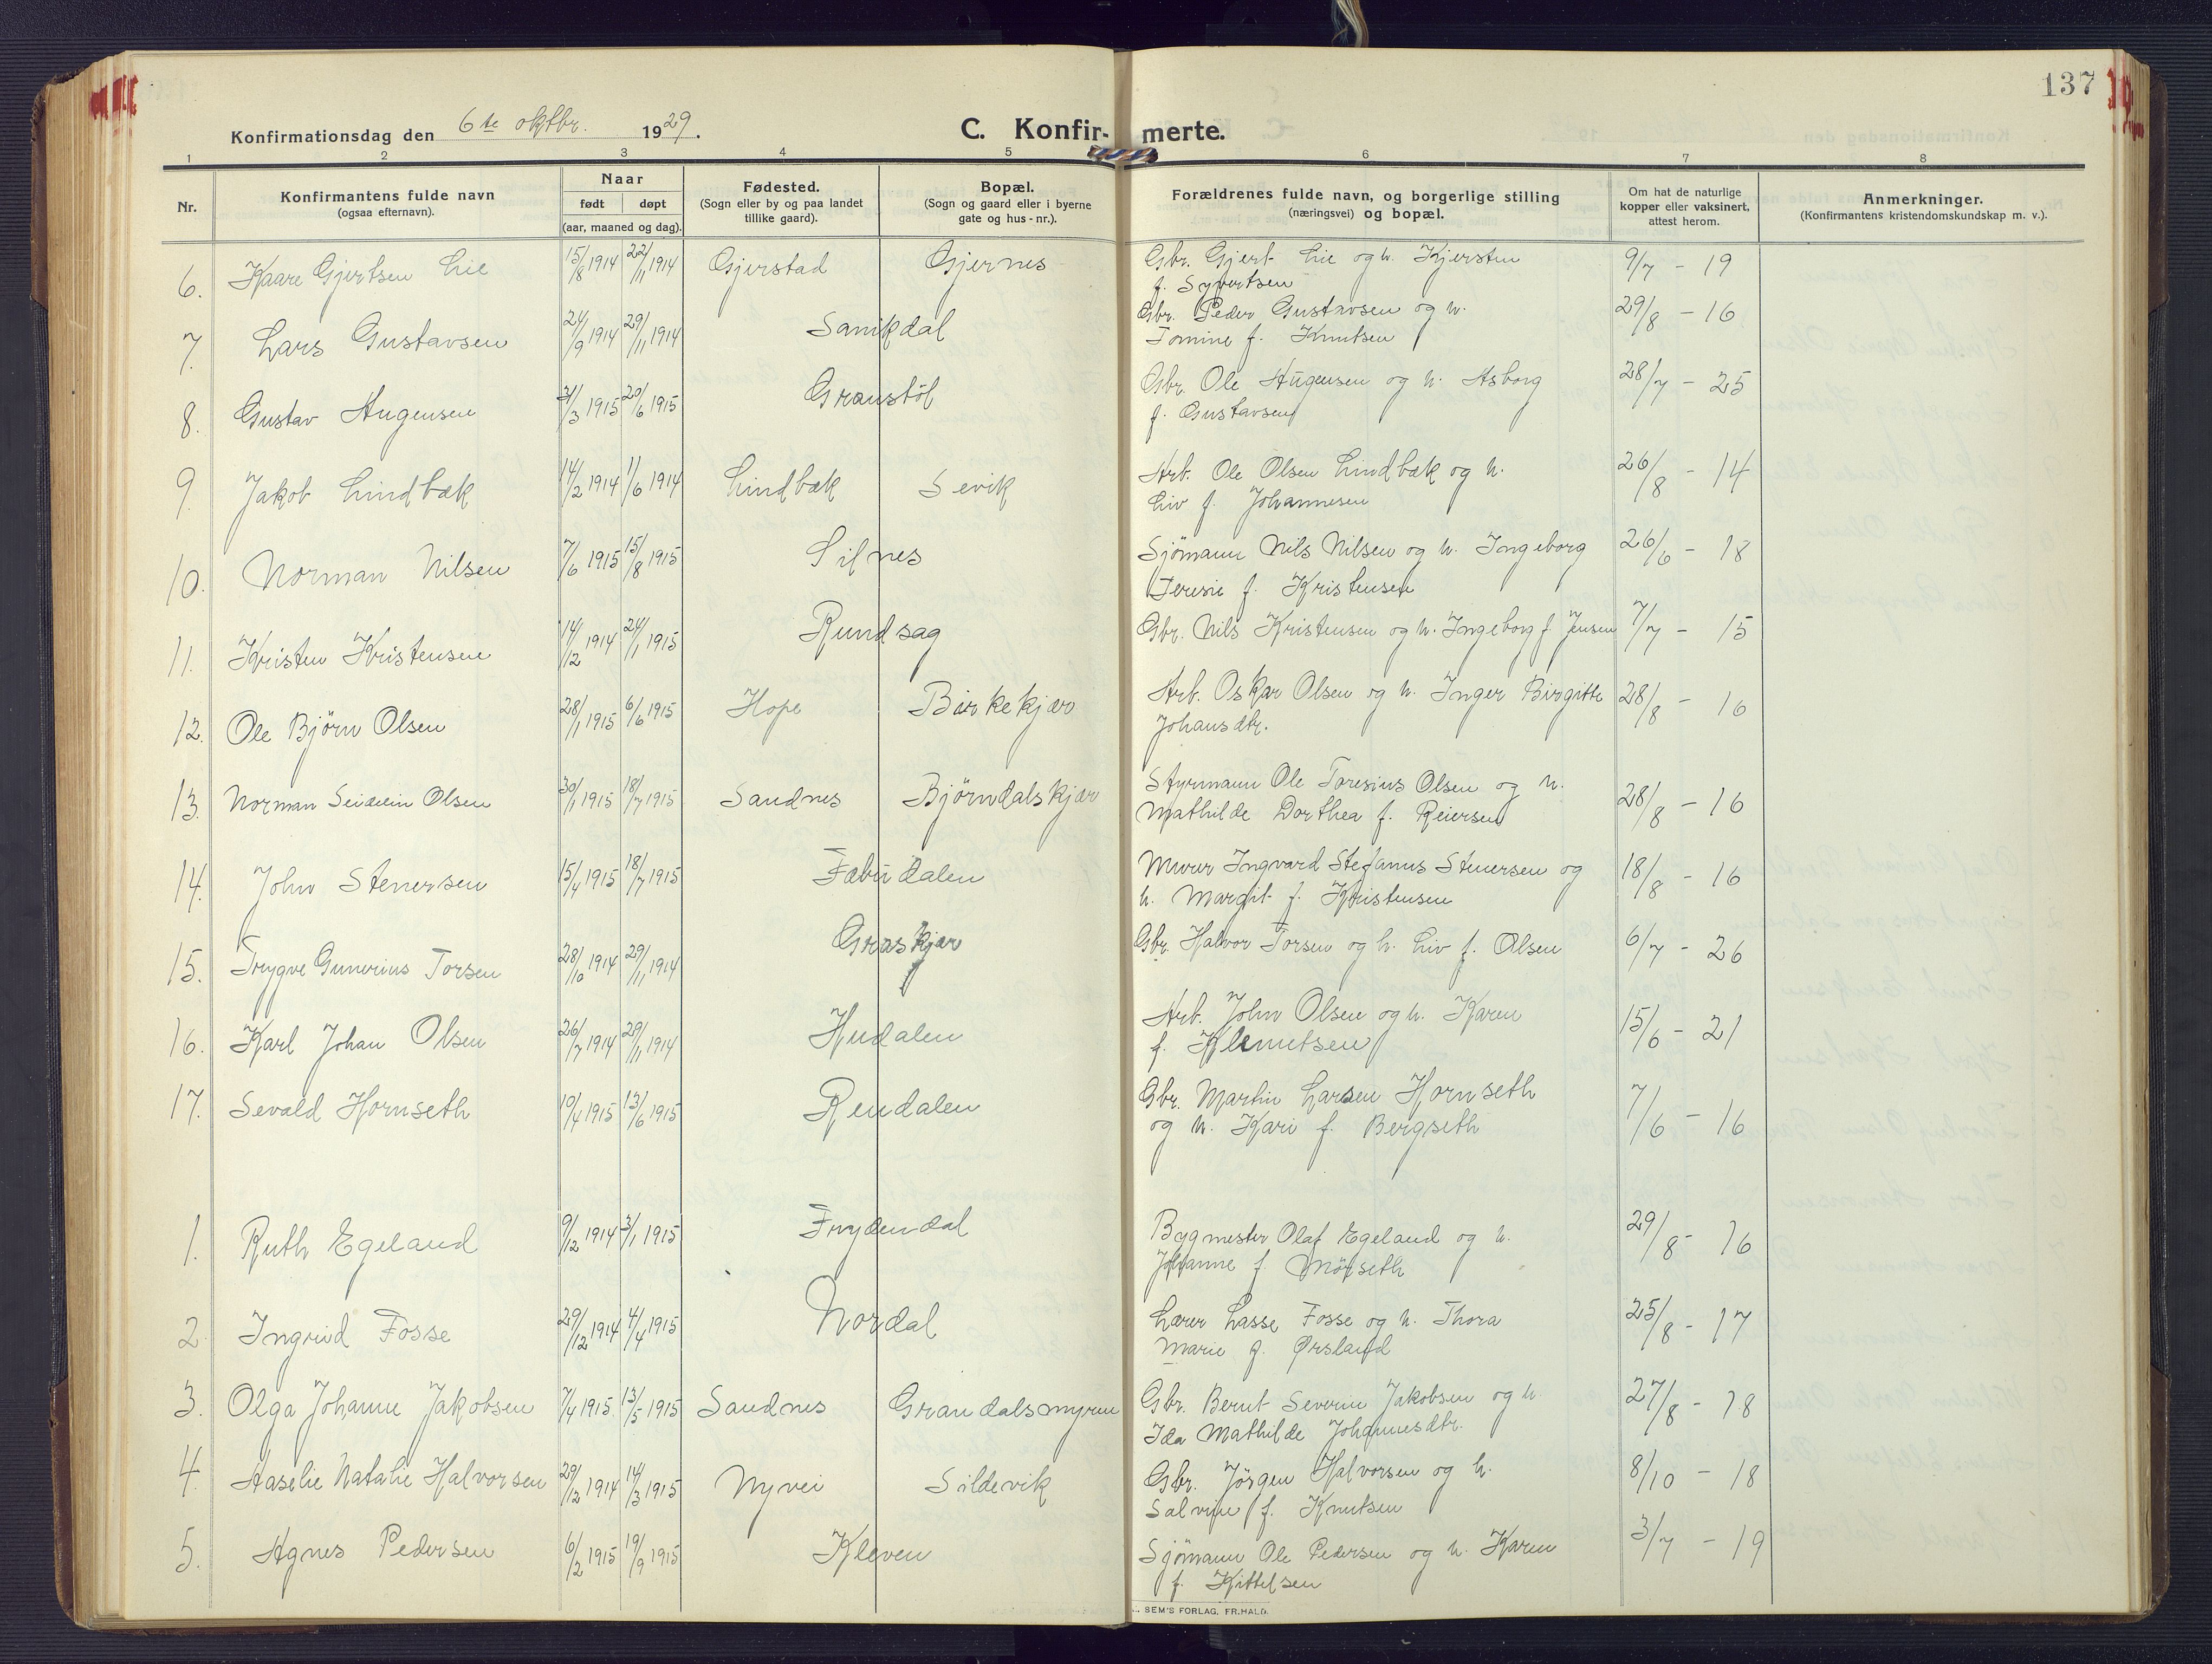 137
Konfirmationsdag den 6te oktbr. 1929.
C. Konfirmerte.
1 2 3 4 5 6 7 8
Nr.
Konfirmantens fulde navn
(ogsaa efternavn).
Naar
født døpt
(aar, maaned og dag).
Fødested.
(Sogn eller by og paa landet
tillike gaard).
Bopæl.
(Sogn og gaard eller i byerne
gate og hus - nr.).
Forældrenes fulde navn, og borgerlige stilling
(næringsvei) og bopæl.
Om hat de naturlige
kopper eller vaksinert,
attest herom.
Anmerkninger.
(Konfirmantens kristendomskundskap m. v.).
6. Kaare Gjertsen Lie 15/8 1914 22/11 1914 Gjerstad Gjernes Gbr. Gjert Lie og h. Kjersten 9/7 - 19
f. Syvertsen
7. Lars Gustavsen 24/9 1914 29/11 1914 Sanikdal Gbr. Peder Gustavsen og h. 29/8 - 16
Tomine f. Knutsen
8. Gustav Augensen 31/3 1915 20/6 1915 Granstøl Gbr. Ole Augensen og h. Asborg 28/7 - 25
f. Gustavsen
9. Jakob Lindbæk 14/2 1914 1/6 1914 Lindbæk Sevik Arb. Ole Olsen Lindbæk og h. 26/8 - 14
Liv f. Johannesen
10. Norman Nilsen 7/6 1915 15/8 1915 Silnes Sjömann Nils Nilsen og h. Ingeborg 26/6 - 18
Teresie f. Kristensen
11. Kristen Kristensen 14/12 1914 24/1 1915 Rundsag Gbr. Nils Kristensen og h. Ingeborg f Jensen 7/7 - 15
12. Ole Björn Olsen 28/1 1915 6/6 1915 Hope Birkekjær Arb. Oskar Olsen og h. Inger Birgitte 28/8 - 16
Johansdtr.
13. Norman Seidelin Olsen 30/1 1915 18/7 1915 Sandnes Björndalskjær Styrmann Ole Taresius Olsen og h. 28/8 - 16
Mathilde Dorthea f. Reiersen
14. John Stenersen 15/4 1915 18/7 1915 Fæbudalen Murer Ingvard Stefanus Stenersen og 18/8 - 16
h. Margit f. Kristensen
15. Trygve Gunerius Torsen 28/10 1914 29/11 1914 Graskjær Gbr. Halvor Torsen og h. Liv f. Olsen 6/7 - 26
16. Karl Johan Olsen 26/7 1914 29/11 1914 Hudalen Arb. John Olsen og h. Karen 15/6 - 21
f. Klemetsen
17. Sevald Hornseth 10/4 1915 13/6 1915 Rendalen Gbr. Martin Larsen Hornseth 7/6 - 16
og h. Kari f. Bergseth
1. Ruth Egeland 9/12 1914 3/1 1915 Frydendal Bygmester Olaf Egeland og h. 29/8 - 16
Johanne f Mörseth
2 Ingrid Fosse 29/12 1914 4/4 1915 Nordal Lærer Lasse Fosse og h. Thora 25/8 - 17
Marie f. Ørsland
3. Olga Johanne Jakobsen 7/4 1915 13/5 1915 Sandnes Grandalsmyren Gbr. Bernt Severin Jakobsen og h. 27/8 - 18
Ida Mathilde Johannesdtr.
4. Aaselie Natalie Halvorsen 29/12 1914 14/3 1915 Nyvei Sildevik Gbr. Jörgen Halvorsen og h. 8/10 - 18
Salvine f. Knutsen
5. Agnes Pedersen 6/2 1915 19/9 1915 Kleven Sjömann Ole Pedersen og h. Karen 3/7 - 19
f. Kittelsen
SEM'S FORLAG, FR.HALD.